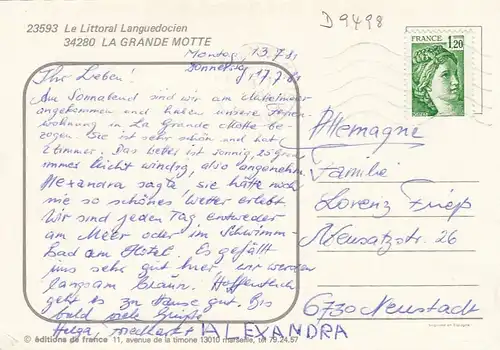 23593 Le Littoral Languedocien
34280 LA GRANDE MOTTE
D 9498
FRANCE
1,20
Montag, 13.7.81
Donnerstag 17.7.81
Ihr Lieben!
Am Sonnabend sind wir am Mittelmeer
angekommen und haben unsere Ferien-
wohnung in La Grande Motte be-
zogen. Sie ist sehr schön und hat
Zimmer. Das Wetter ist sonnig, 25 Grad
immer leicht windig, also angenehm.
Alexandra sagte, sie hätte noch
nie so schönes Wetter erlebt
Wir sind jeden Tag entweder
am Meer oder im Schwimm-
Bad am Hotel. Es gefällt
uns sehr gut hier, wir werden
langsam braun. Hoffentlich
geht es zu Hause gut. Bis
bald viele Grüße
Helga, ALEXANDRA
Allemagne
Familie
Lorenz
26
6730 Neustadt
© éditions de france 11, avenue de la timone 13010 marseille, tél 79.24.57